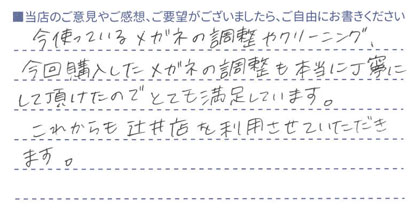 ■当店のご意見やご感想、ご要望がございましたら、ご自由にお書きください
今使っているメガネの調整やクリーニング、
今回購入したメガネの調整も本当に丁寧に
して頂けたのでとても満足しています。
これからも辻井店を利用させていただき
ます。